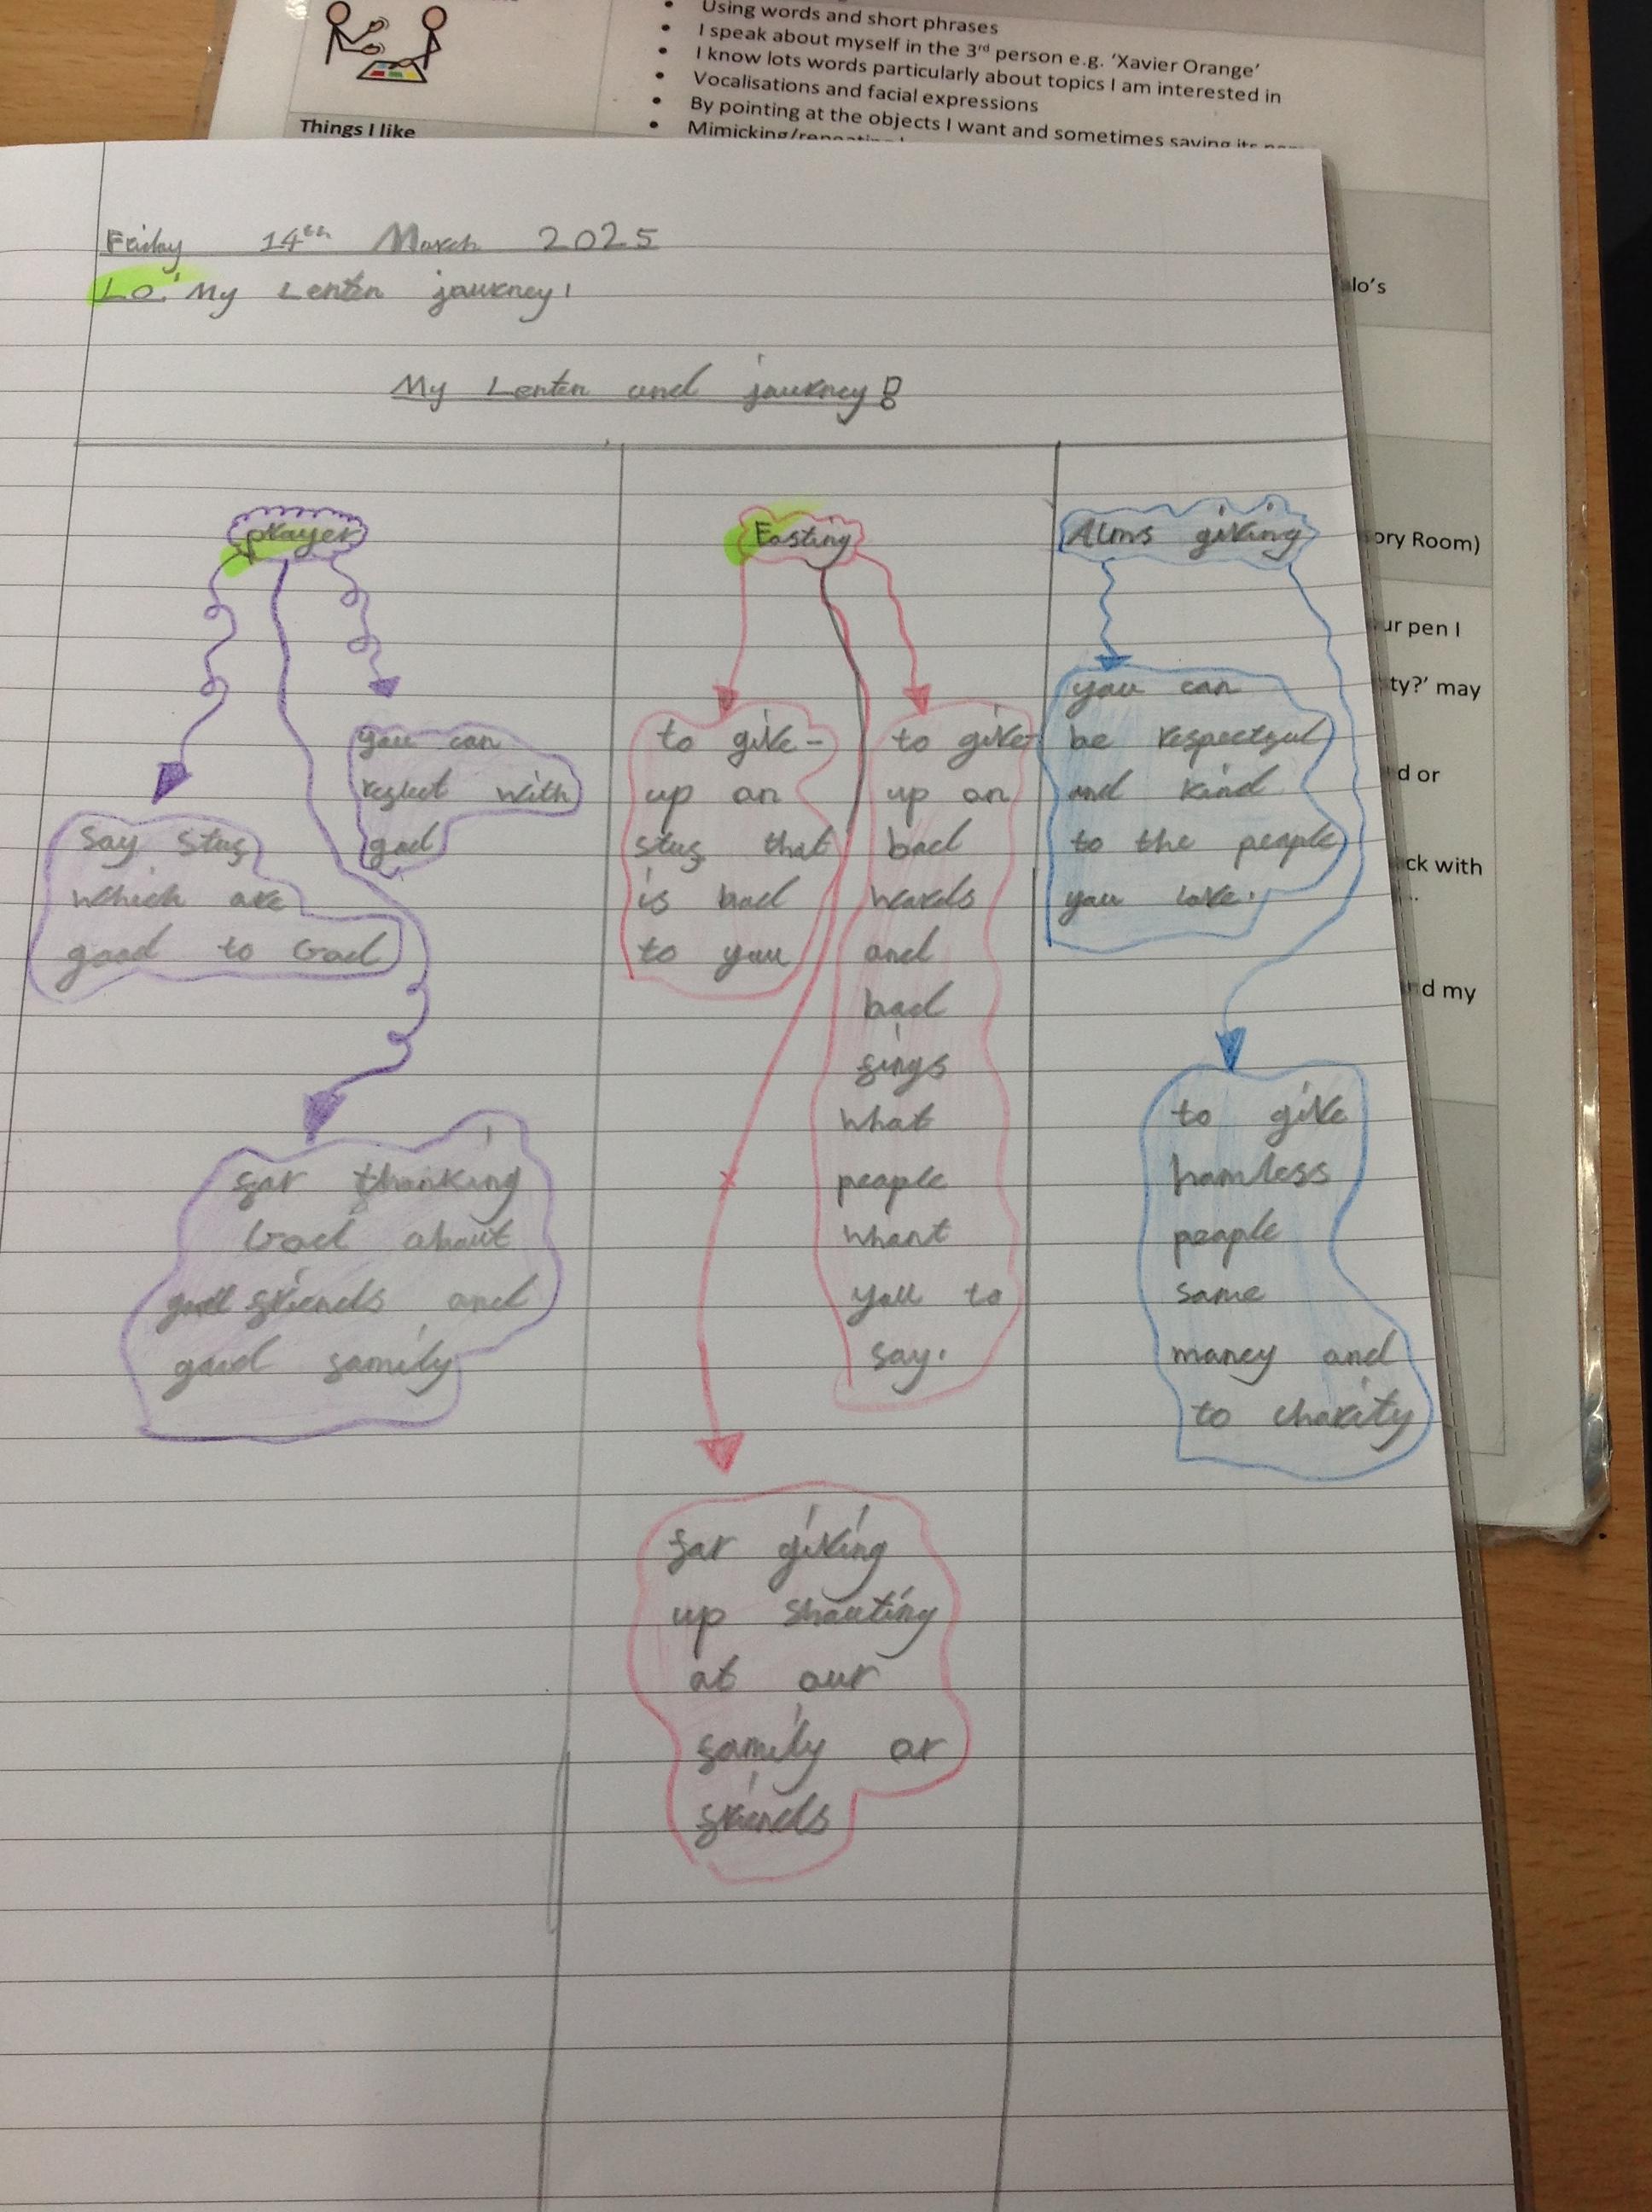 Using words and short phrases
I speak about myself in the 3rd person e.g. 'Xavier Orange'
I know lots words particularly about topics I am interested in
Vocalisations and facial expressions
By pointing at the objects I want and sometimes saying its
Things I like
Mimicking/repeating
Friday 14th March 2025
LO: My Lenten journey!
My Lenten and journey!
prayer
say stuf
which are
good to God
you can
reflect with
god
for thanking
God about
good friends and
good family
Fasting
to give-
up on
stuf that
is bad
to you
to give-
up on
bad
words
and
bad
fings
what
people
whant
you to
say.
for giving
up shouting
at our
family or
friends
Alms giving
you can
be respectful
and kind
to the people
you love.
to give
homless
people
some
money and
to charity
lo's
ory Room)
ur pen I
ty?' may
d or
ck with
nd my